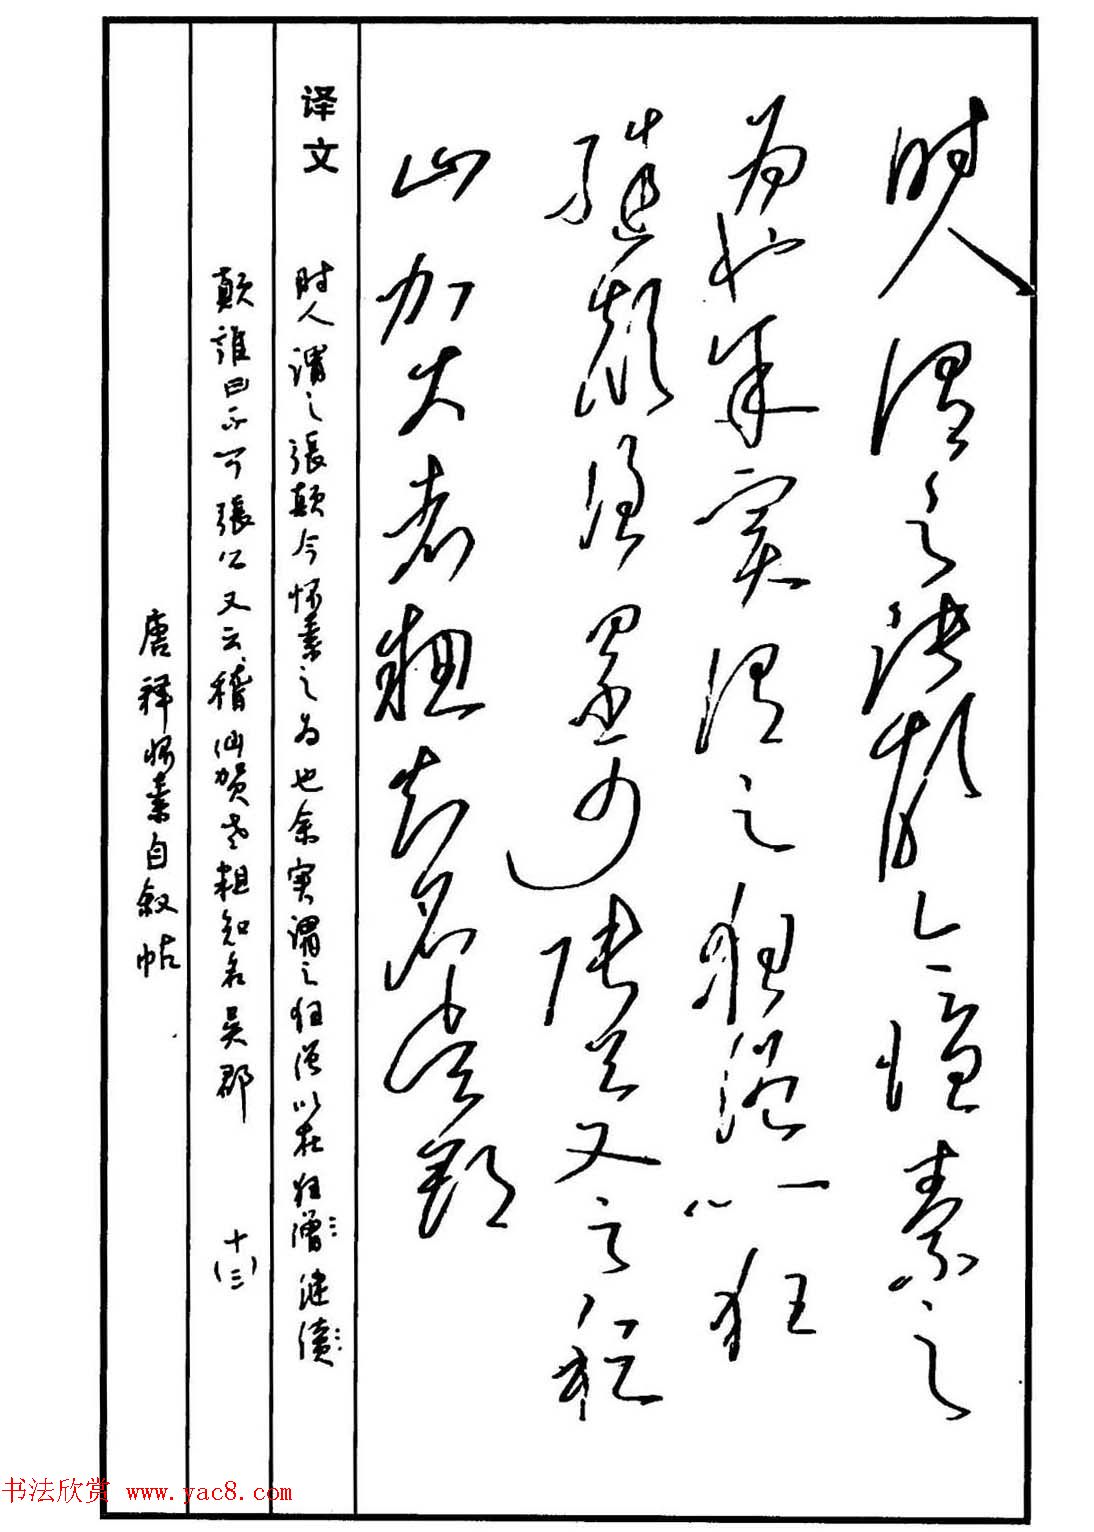 时人谓之张颠今怀素之
为也余实谓之狂僧以狂
继颠谁曰不可张公又云稽
山贺老粗知名吴郡
译文 时人谓之張颠今怀素之为也余实谓之狂僧以在狂僧继续
颠誰曰不可張公又云稽仙贺老粗知名吴郡 十(三)
唐释怀素自叙帖
书法欣赏 www.yac8.com